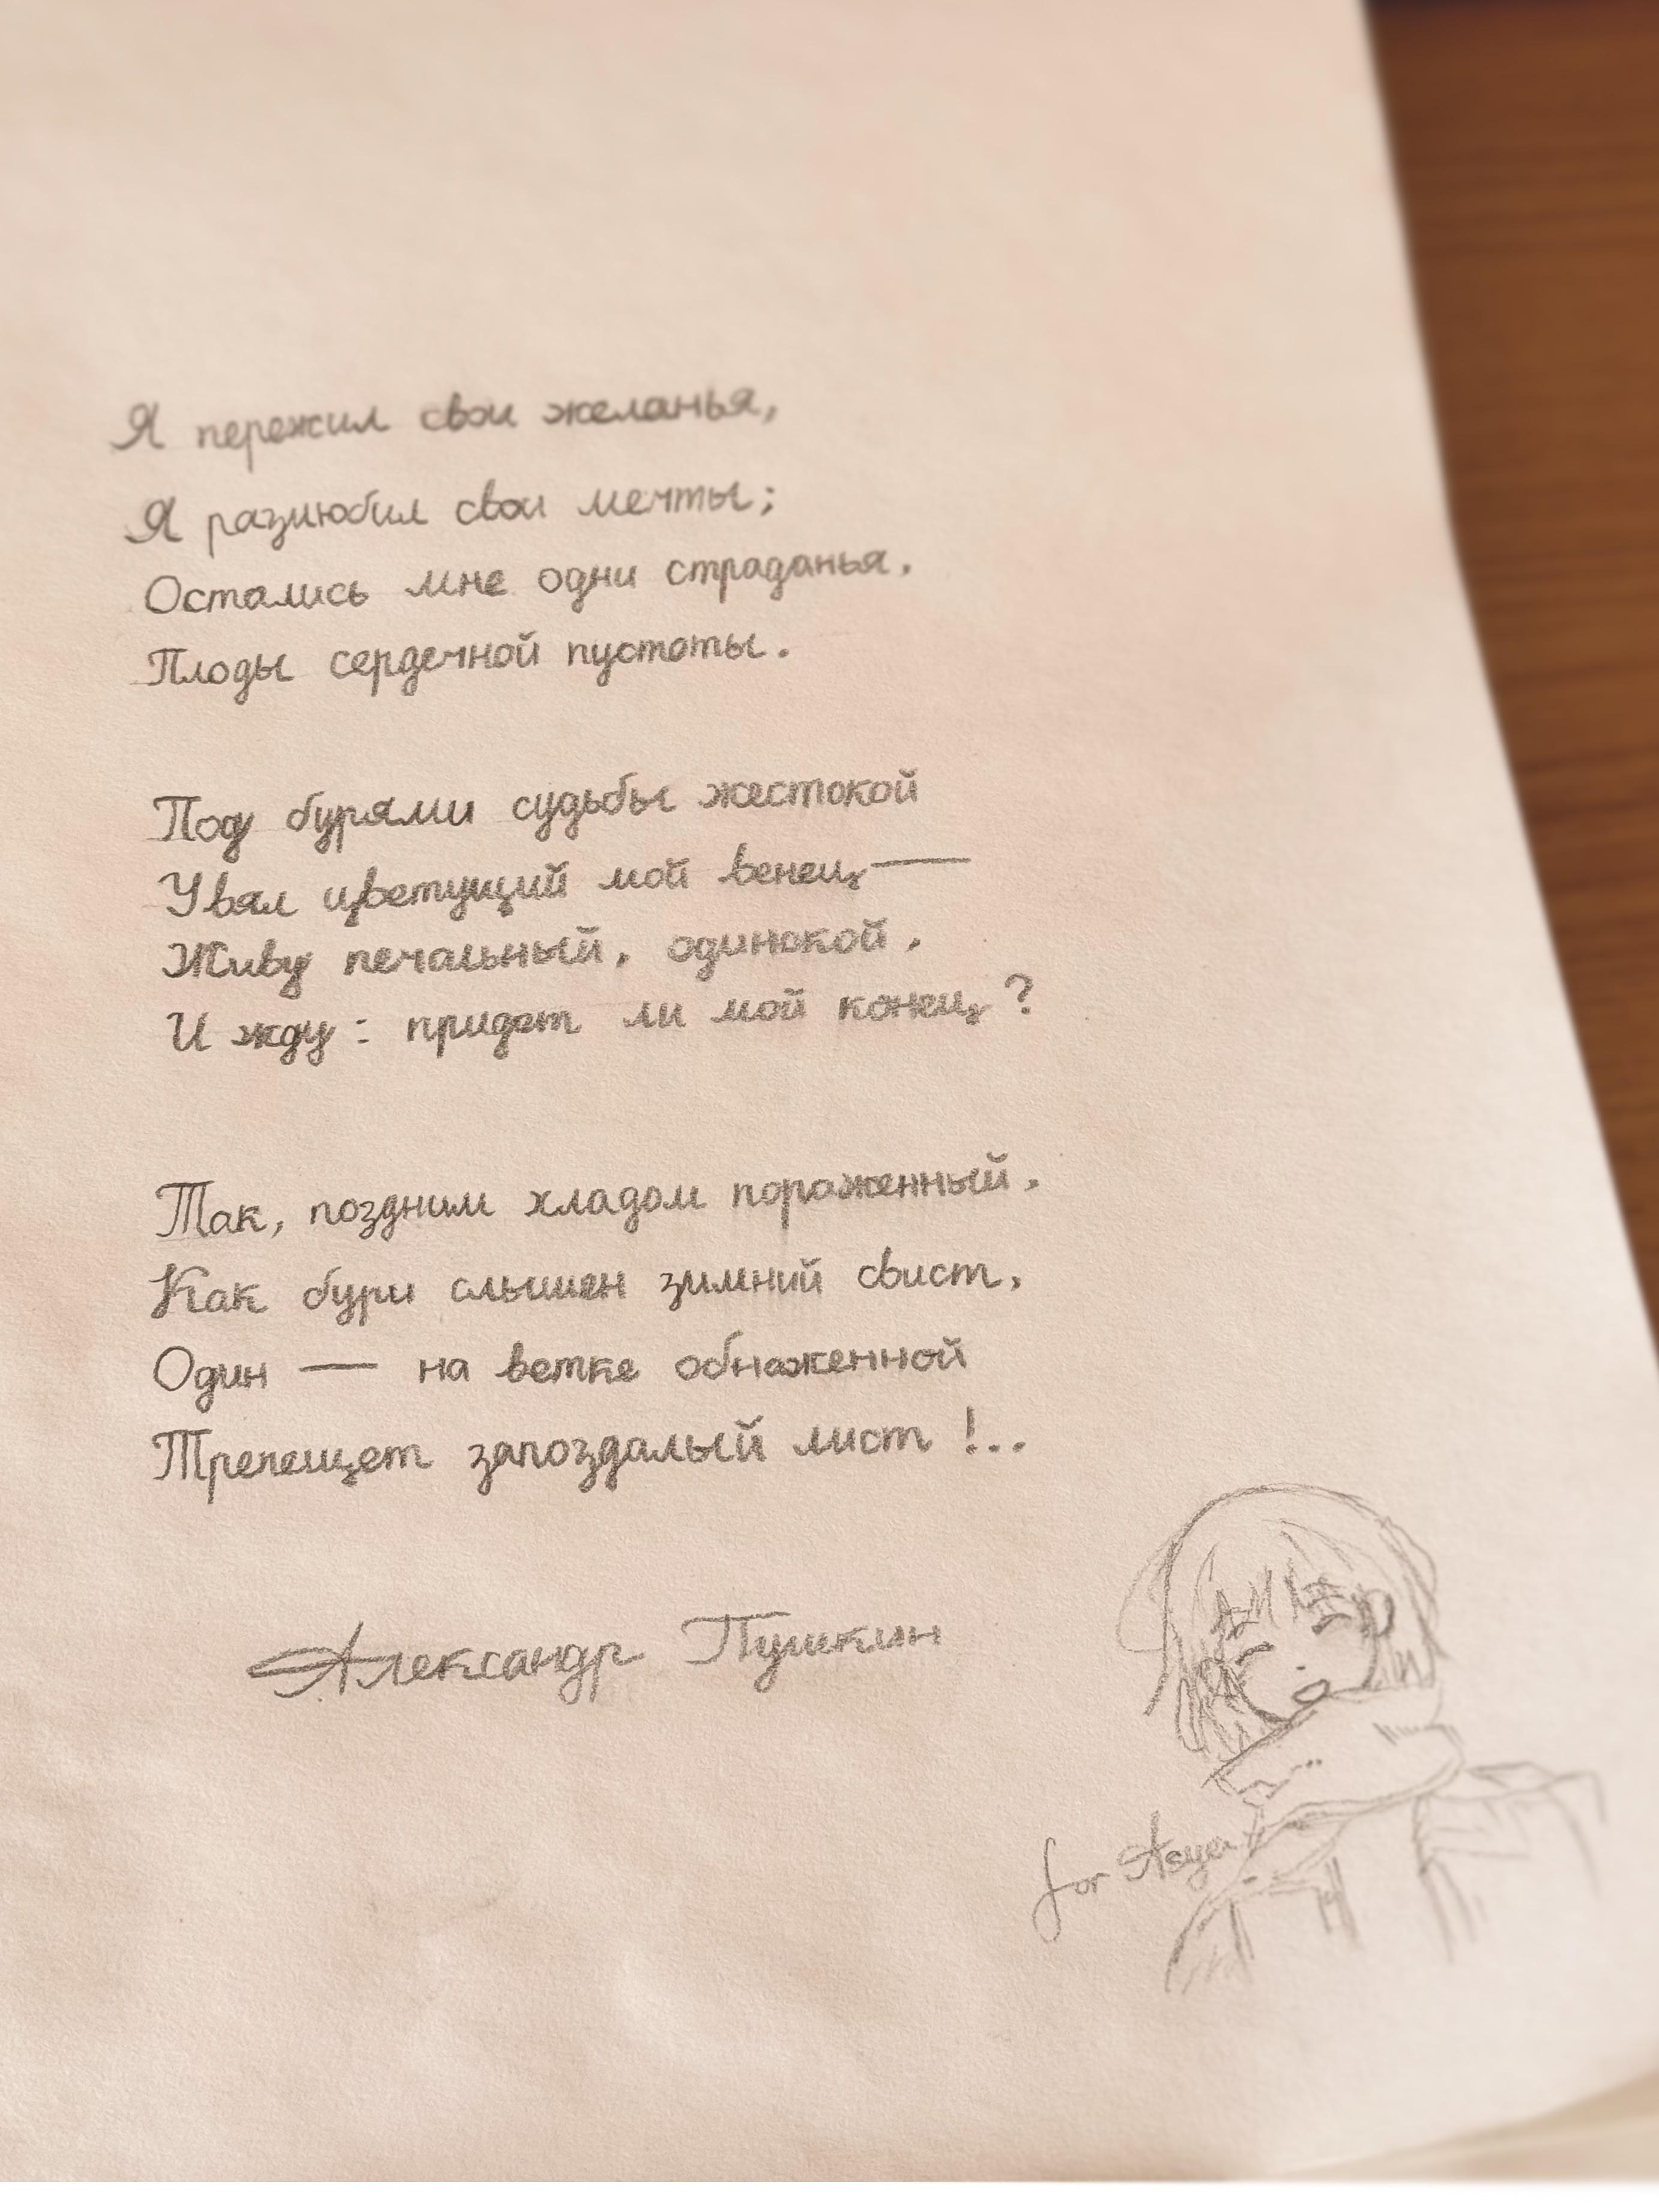 Я пережил свои желанья,
Я разлюбил свои мечты;
Остались мне одни страданья,
Плоды сердечной пустоты.
Под бурями судьбы жестокой
Увял цветущий мой венец —
Живу печальный, одинокой,
И жду: придет ли мой конец?
Так, поздним хладом пораженный,
Как бури слышен зимний свист,
Один — на ветке обнаженной
Трепещет запоздалый лист!..
Александр Пушкин
for Asya